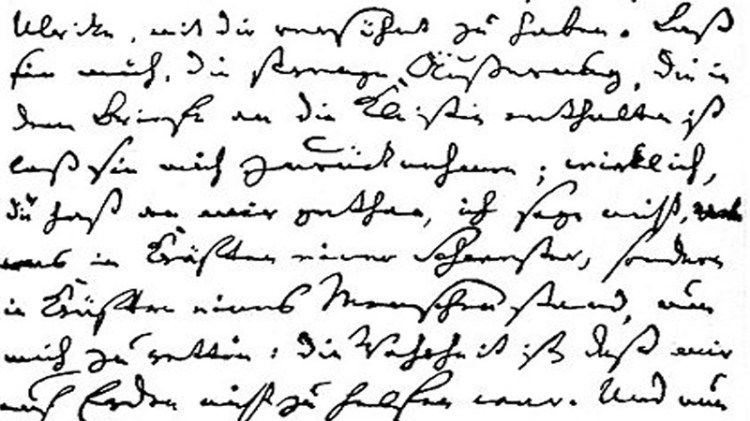 Ulrike, mit dir versöhnt zu haben. Laß
sie mich, die strenge Äußerung, die in
dem Briefe an die Kleisten enthalten ist
laß sie mich zurücknehmen; wirklich,
Du hast an mir gethan, ich sage nicht,
was in Kräften einer Schwester, sondern
in Kräften eines Menschen stand, um
mich zu retten: die Wahrheit ist, daß mir
auf Erden nicht zu helfen war. Und nun